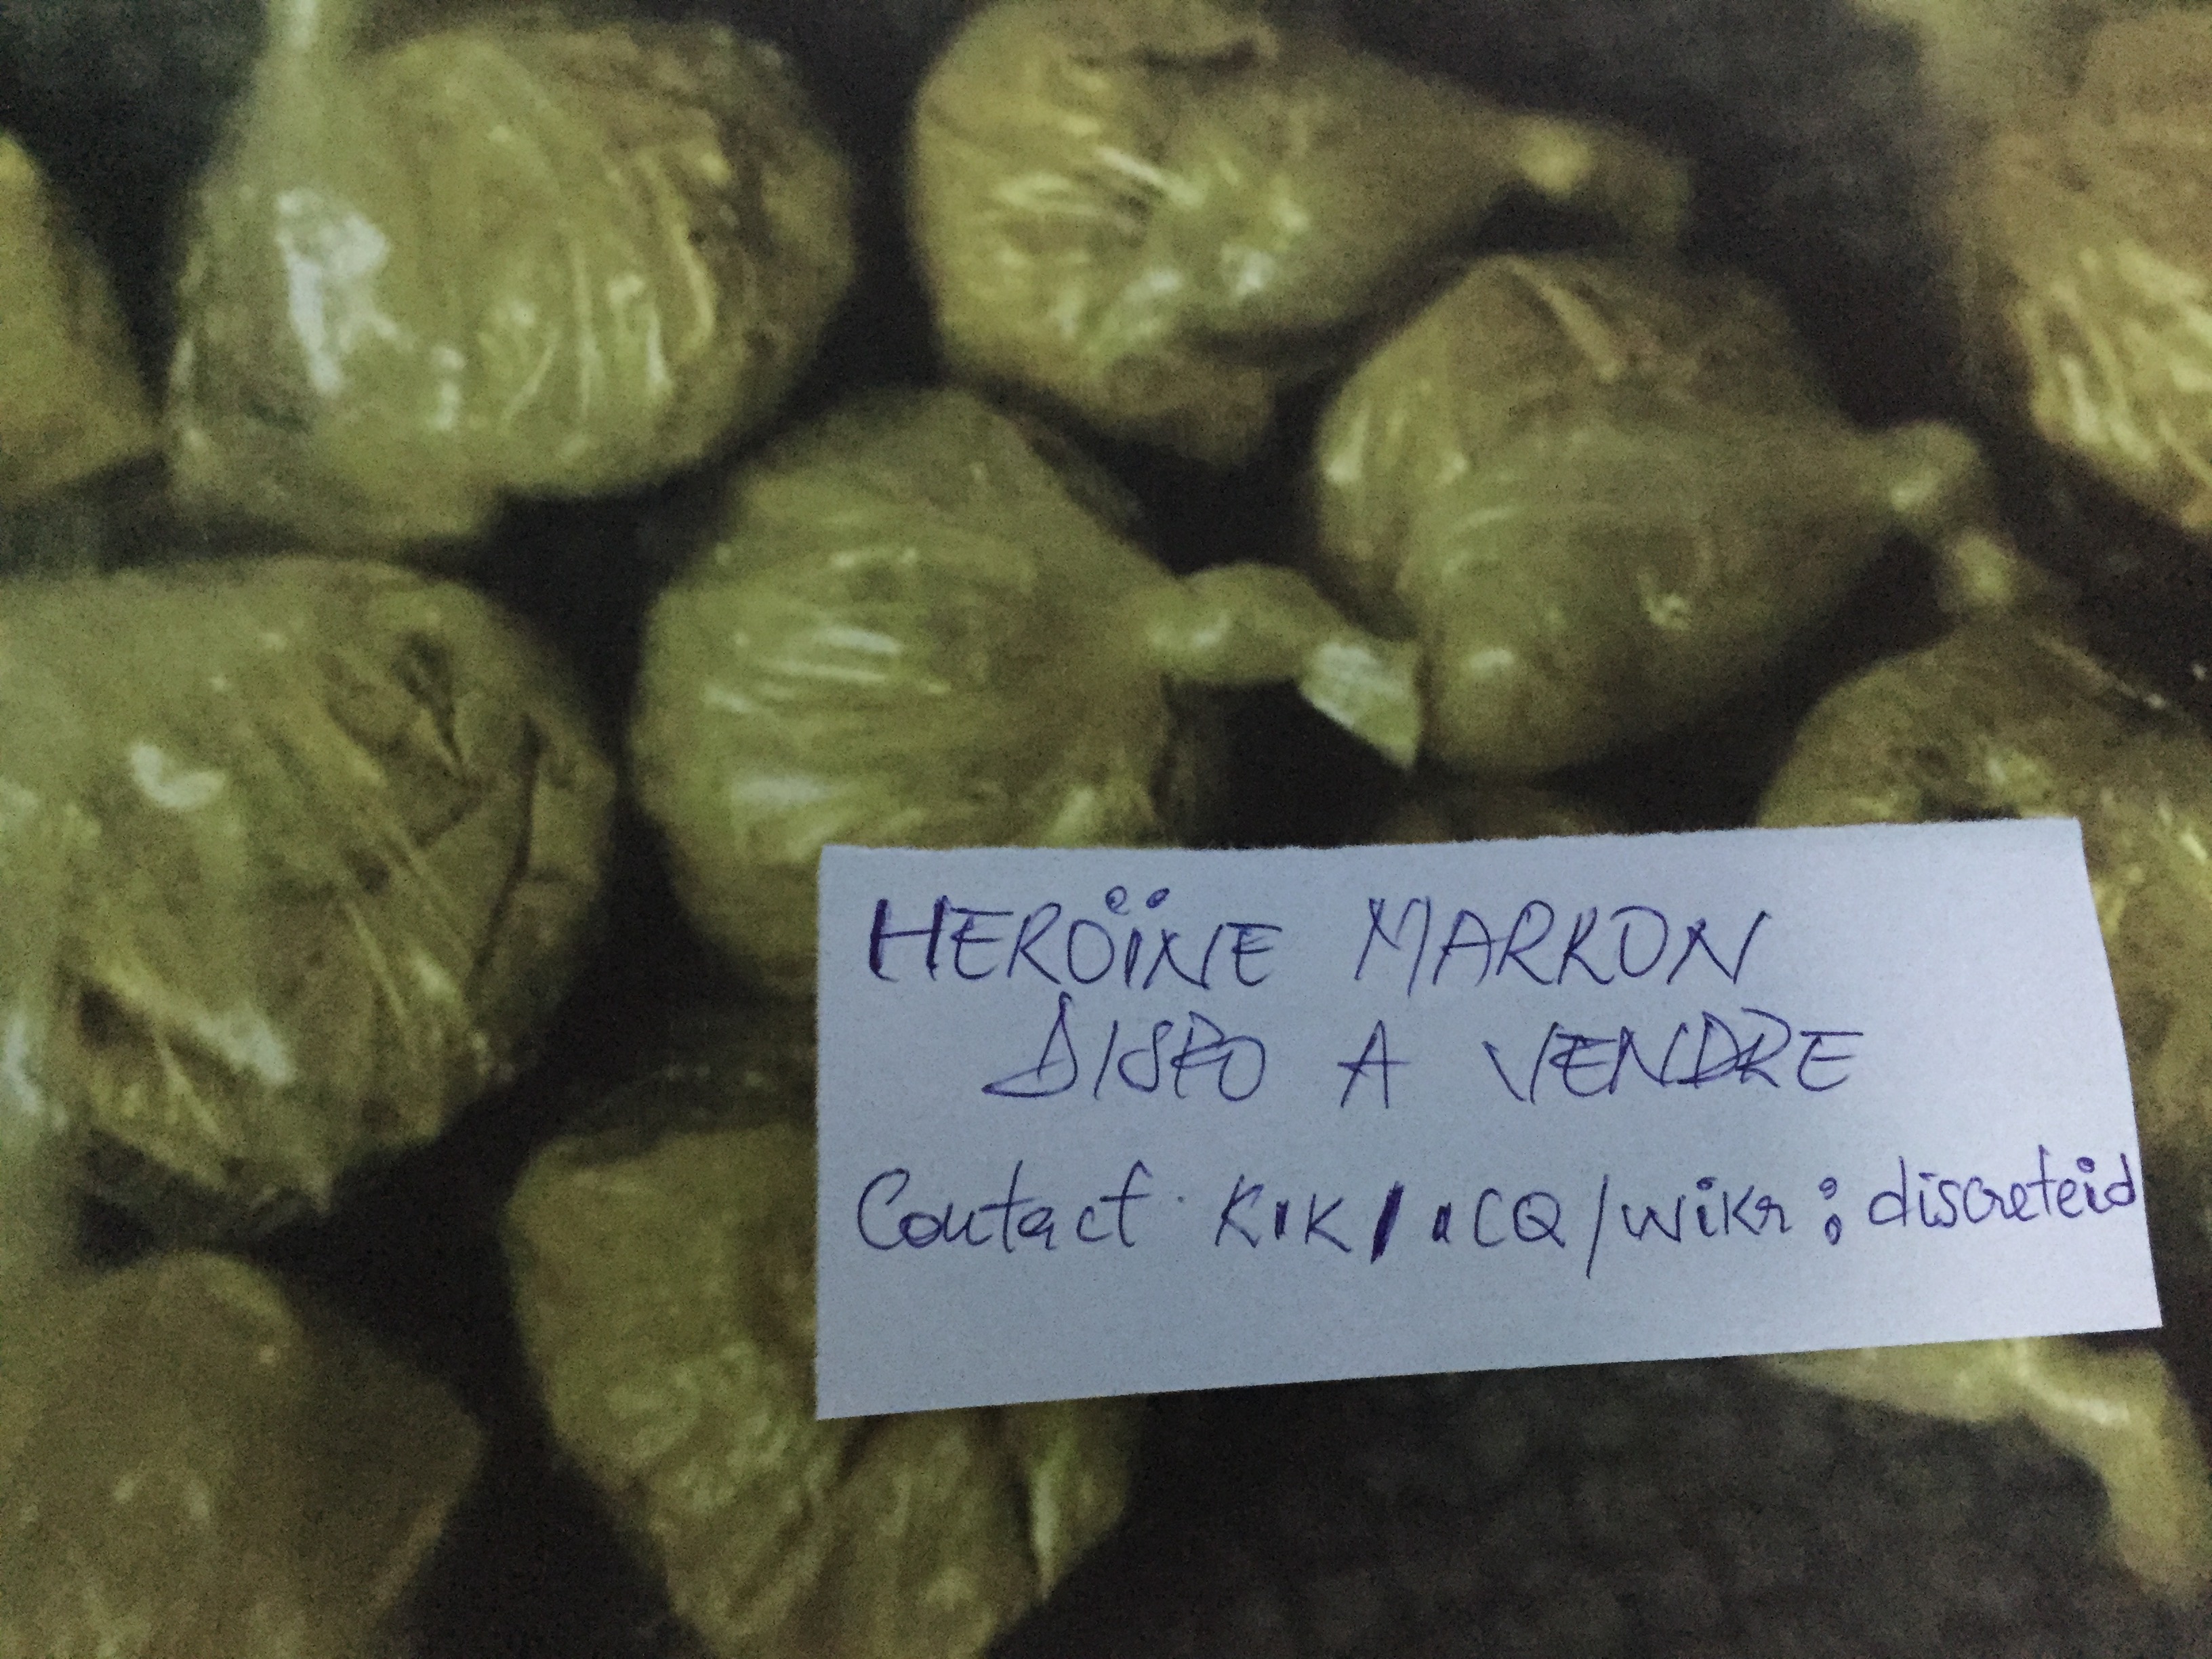 HEROÏNE MARRON
DISPO A VENDRE
Contact KIK/ICQ/wikr : discreteid